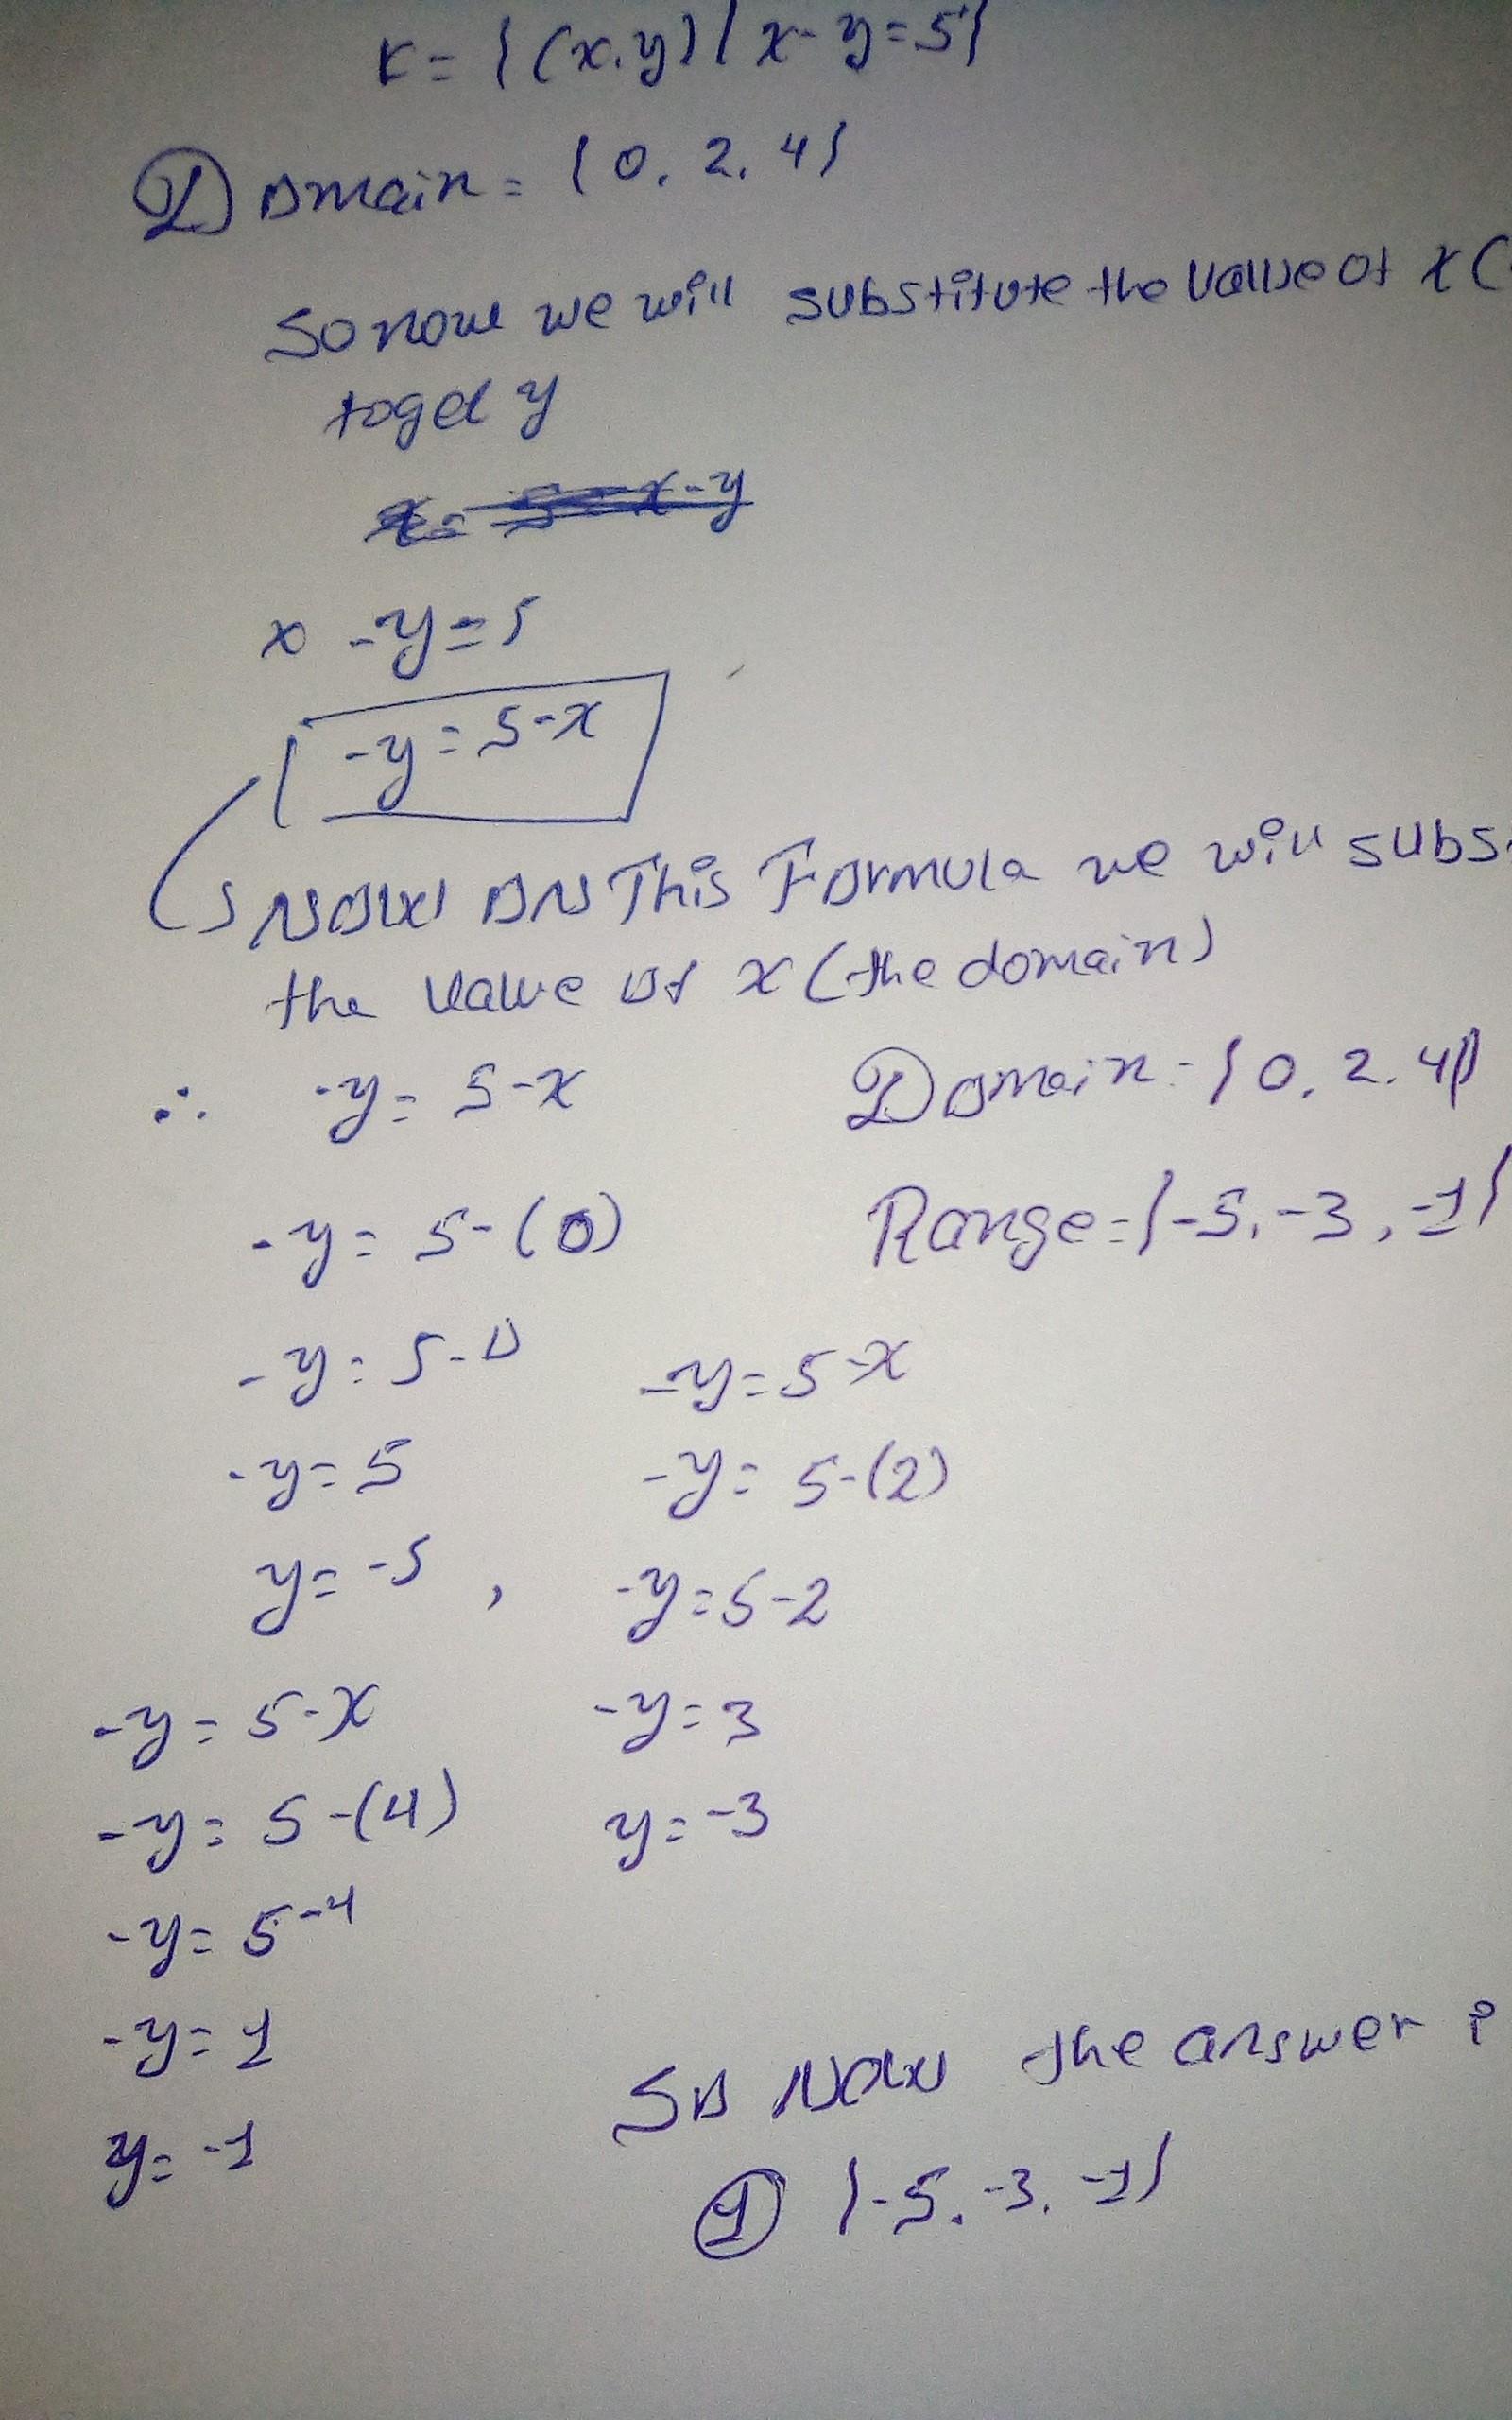 K = {(x,y) | x - y = 5}
Domain = {0, 2, 4}
So now we will substitute the value of x (
to get y
x - y = 5
-y = 5-x
Now on This Formula we will subs
the value of x (the domain)
∴ -y = 5-x
Domain = {0, 2, 4}
Range = {-5, -3, -1}
-y = 5-(0)
-y = 5-0
-y = 5
y = -5 ,
-y = 5-x
-y = 5-(2)
-y = 5-2
-y = 3
y = -3
-y = 5-x
-y = 5-(4)
-y = 5-4
-y = 1
y = -1
So Now the answer i
① {-5, -3, -1}